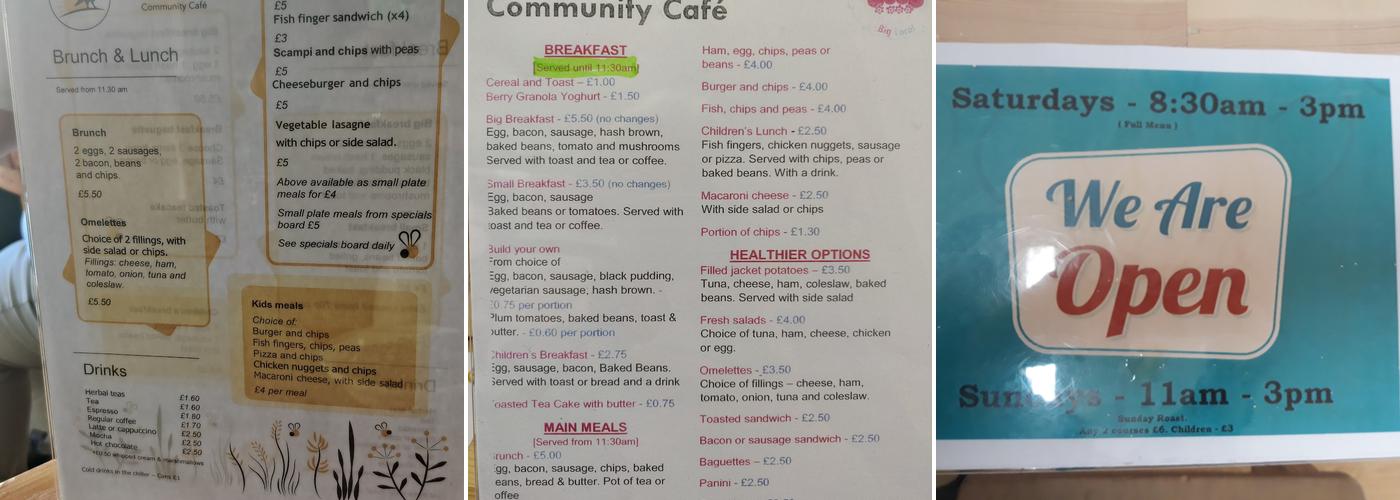 Community Café
Brunch & Lunch
Served from 11.30 am
Brunch
2 eggs, 2 sausages,
2 bacon, beans
and chips.
£5.50
Omelettes
Choice of 2 fillings, with
side salad or chips.
Fillings: cheese, ham,
tomato, onion, tuna and
coleslaw.
£5.50
Drinks
Herbal teas £1.60
Tea £1.60
Espresso £1.80
Regular coffee £1.70
Latte or cappuccino £2.50
Mocha £2.50
Hot chocolate £2.50
+£0.50 whipped cream & marshmallows
Cold drinks in the chiller – Cans £1
£5
Fish finger sandwich (x4)
£3
Scampi and chips with peas
£5
Cheeseburger and chips
£5
Vegetable lasagne
with chips or side salad.
£5
Above available as small plate
meals for £4
Small plate meals from specials
board £5
See specials board daily
Kids meals
Choice of:
Burger and chips
Fish fingers, chips, peas
Pizza and chips
Chicken nuggets and chips
Macaroni cheese, with side salad
£4 per meal
Community Café
Big Local
BREAKFAST
[Served until 11:30am]
Cereal and Toast – £1.00
Berry Granola Yoghurt - £1.50
Big Breakfast - £5.50 (no changes)
Egg, bacon, sausage, hash brown,
baked beans, tomato and mushrooms
Served with toast and tea or coffee.
Small Breakfast - £3.50 (no changes)
Egg, bacon, sausage
Baked beans or tomatoes. Served with
toast and tea or coffee.
Build your own
From choice of
Egg, bacon, sausage, black pudding,
vegetarian sausage, hash brown. -
£0.75 per portion
Plum tomatoes, baked beans, toast &
butter. - £0.60 per portion
Children's Breakfast - £2.75
Egg, sausage, bacon, Baked Beans.
Served with toast or bread and a drink
Toasted Tea Cake with butter - £0.75
MAIN MEALS
[Served from 11:30am]
Brunch - £5.00
Egg, bacon, sausage, chips, baked
beans, bread & butter. Pot of tea or
coffee
Ham, egg, chips, peas or
beans - £4.00
Burger and chips - £4.00
Fish, chips and peas - £4.00
Children's Lunch - £2.50
Fish fingers, chicken nuggets, sausage
or pizza. Served with chips, peas or
baked beans. With a drink.
Macaroni cheese - £2.50
With side salad or chips
Portion of chips - £1.30
HEALTHIER OPTIONS
Filled jacket potatoes – £3.50
Tuna, cheese, ham, coleslaw, baked
beans. Served with side salad
Fresh salads - £4.00
Choice of tuna, ham, cheese, chicken
or egg.
Omelettes - £3.50
Choice of fillings – cheese, ham,
tomato, onion, tuna and coleslaw.
Toasted sandwich - £2.50
Bacon or sausage sandwich - £2.50
Baguettes – £2.50
Panini - £2.50
Saturdays - 8:30am - 3pm
( Full Menu )
We Are
Open
Sundays - 11am - 3pm
Sunday Roast.
Any 2 courses £6. Children - £3